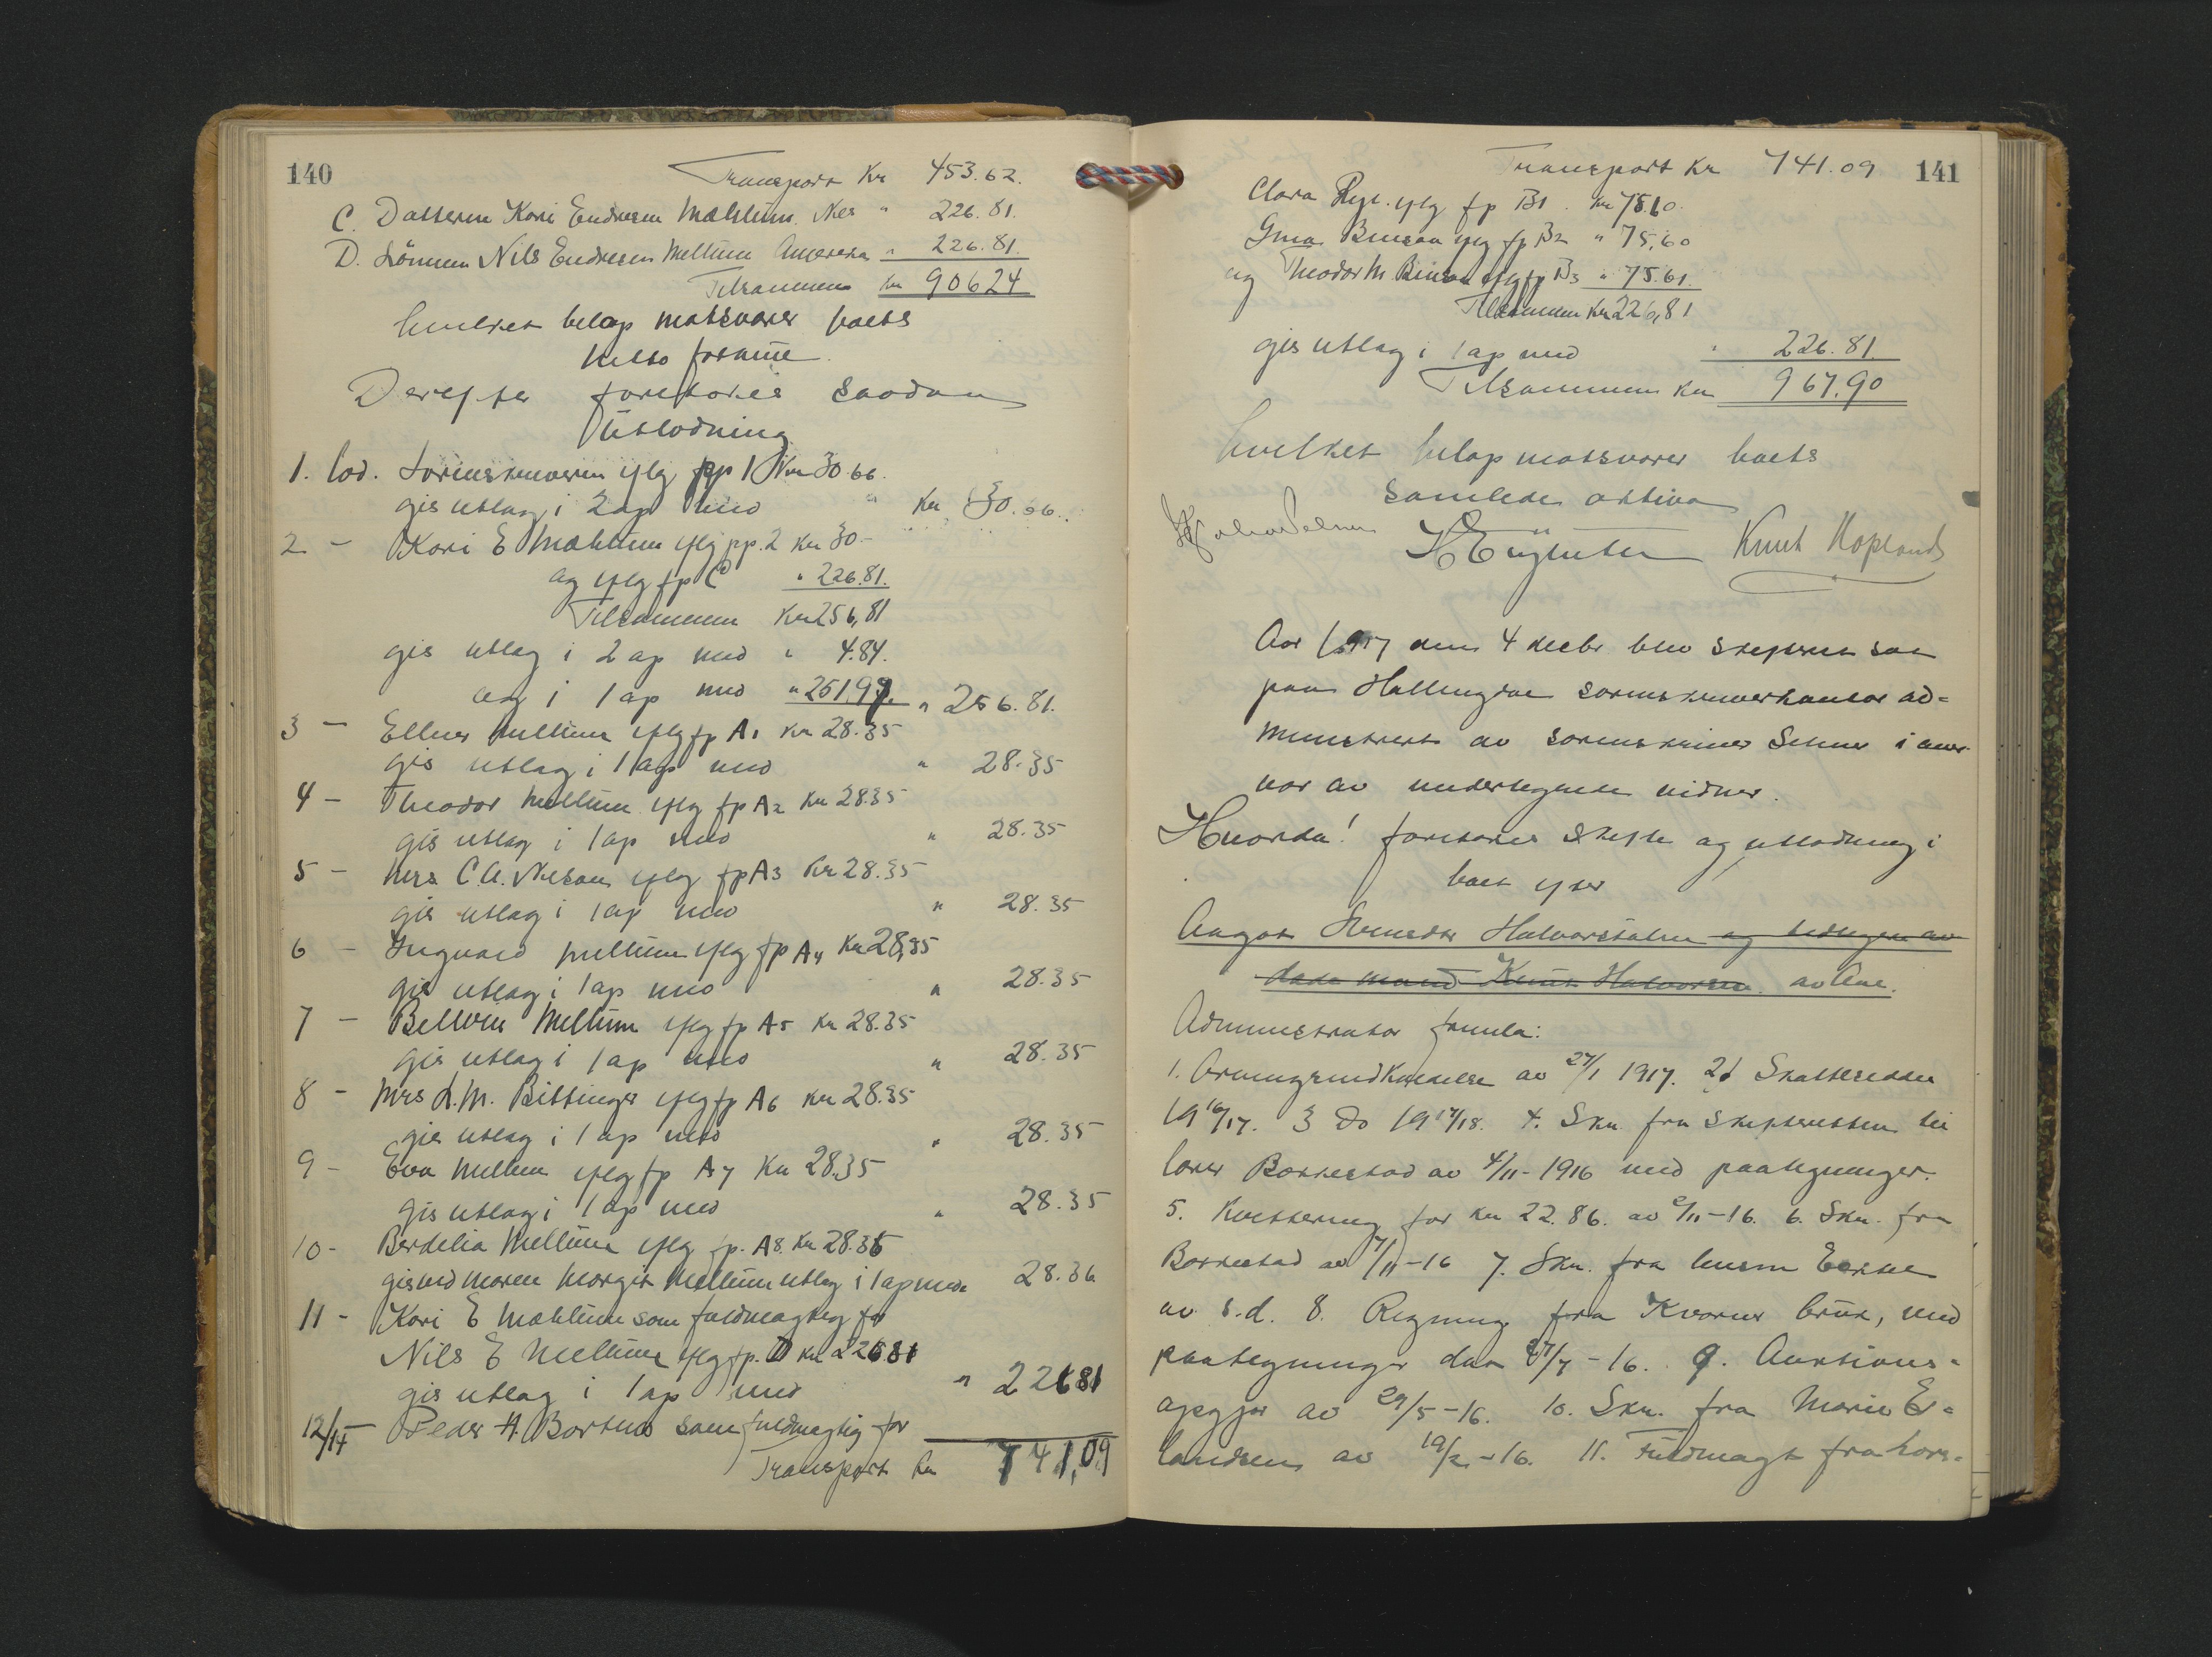 140
Transport Kr 453.62.
C. Datteren Kari Endresen Mæhlum Nes " 226.81.
D. Sönnen Nils Endresen Mellum Amerika " 226.81.
Tilsammen Kr 90624
hvilket belöp motsvarer boets
netto formue.
Derefter foretokes saadan
Utlodning
1. lod. Sorenskriveren iflg pp 1 Kr 30 66.
gis utlag i 2 ap med " Kr 30.66.
2 - Kari E Mæhlum iflg pp. 2 Kr 30.-
og iflg fp C " 226.81.
Tilsammen Kr 256,81
gis utlag i 2 ap med " 4.84.
og i 1 ap med " 251.97. " 256.81.
3 - Ellner Mellum iflg fp A1 Kr 28.35
gis utlag i 1 ap med " 28.35
4 - Theodor Mellum iflg fp A2 Kr 28.35
gis utlag i 1 ap med " 28.35
5 - Mrs C.A. Nelson iflg fp A3 Kr 28.35
gis utlag i 1 ap med " 28.35
6 - Ingvald Mellum iflg fp A4 Kr 28,35
gis utlag i 1 ap med " 28.35
7 - Mellum iflg fp A5 Kr 28.35
gis utlag i 1 ap med " 28.35
8 - Mrs L.M. Bittinger iflg fp A6 Kr 28.35
gis utlag i 1 ap med " 28.35
9 - Eva Mellum iflg fp A7 Kr 28.35
gis utlag i 1 ap med " 28.35
10 - Berdelia Mellum iflg fp. A8. Kr 28.36
gis ved moren Margit Mellum utlag i 1 ap med 28.36
11 - Kari E Mæhlum som fuldmægtig for
Nils E Mellum iflg fp. D Kr 22681
gis utlag i 1 ap med " 22681
12/14 - Peder A. Bortnes som fuldmægtig for
Transport Kr 741,09
141
Transport Kr 741.09
Clara iflg fp B1. Kr 75.60.
Gina Benson iflg fp B2 " 75,60
og Theodor M Benson iflg fp B3 " 75.61.
Tilsammen Kr 226,81
gis utlag i 1 ap med " 226.81
Tilsammen Kr 967.90
hvilket belöp motsvarer boets
samlede aktiva
Knut Hoplands
Aar 1917 den 4 decbr blev skifteret sat
paa Hallingdal sorenskriverkontor ad=
ministrert av sorenskriver Selmer i nær-
vær av undertegnede vidner.
Hvorda! foretokes skifte og utlodning i
boet efter
Aagot Halvorsdatter og tidligere av
döde mand Knut Halvorsen av Aal.
Administrator fremla:
1. Arvingsmeldelse av 27/1 1917. 2) Skatteseddel
1916/17. 3 Do 1917/18. 4. Skr. fra skifteretten til
lærer Borrestad av 4/11-1916 med paategninger.
5. Kvittering for Kr 22.86. av 2/11-16. 6. Skr. fra
Borrestad av 7/11-16 7. Skr. fra
av s.d. 8. Regning fra Kvarnes bruk, med
paategninger dat 27/7-16. 9. Auktions=
opgjør av 29/5-16. 10. Skr. fra Marie E=
landsen av 19/2-16. 11. Fuldmagt fra